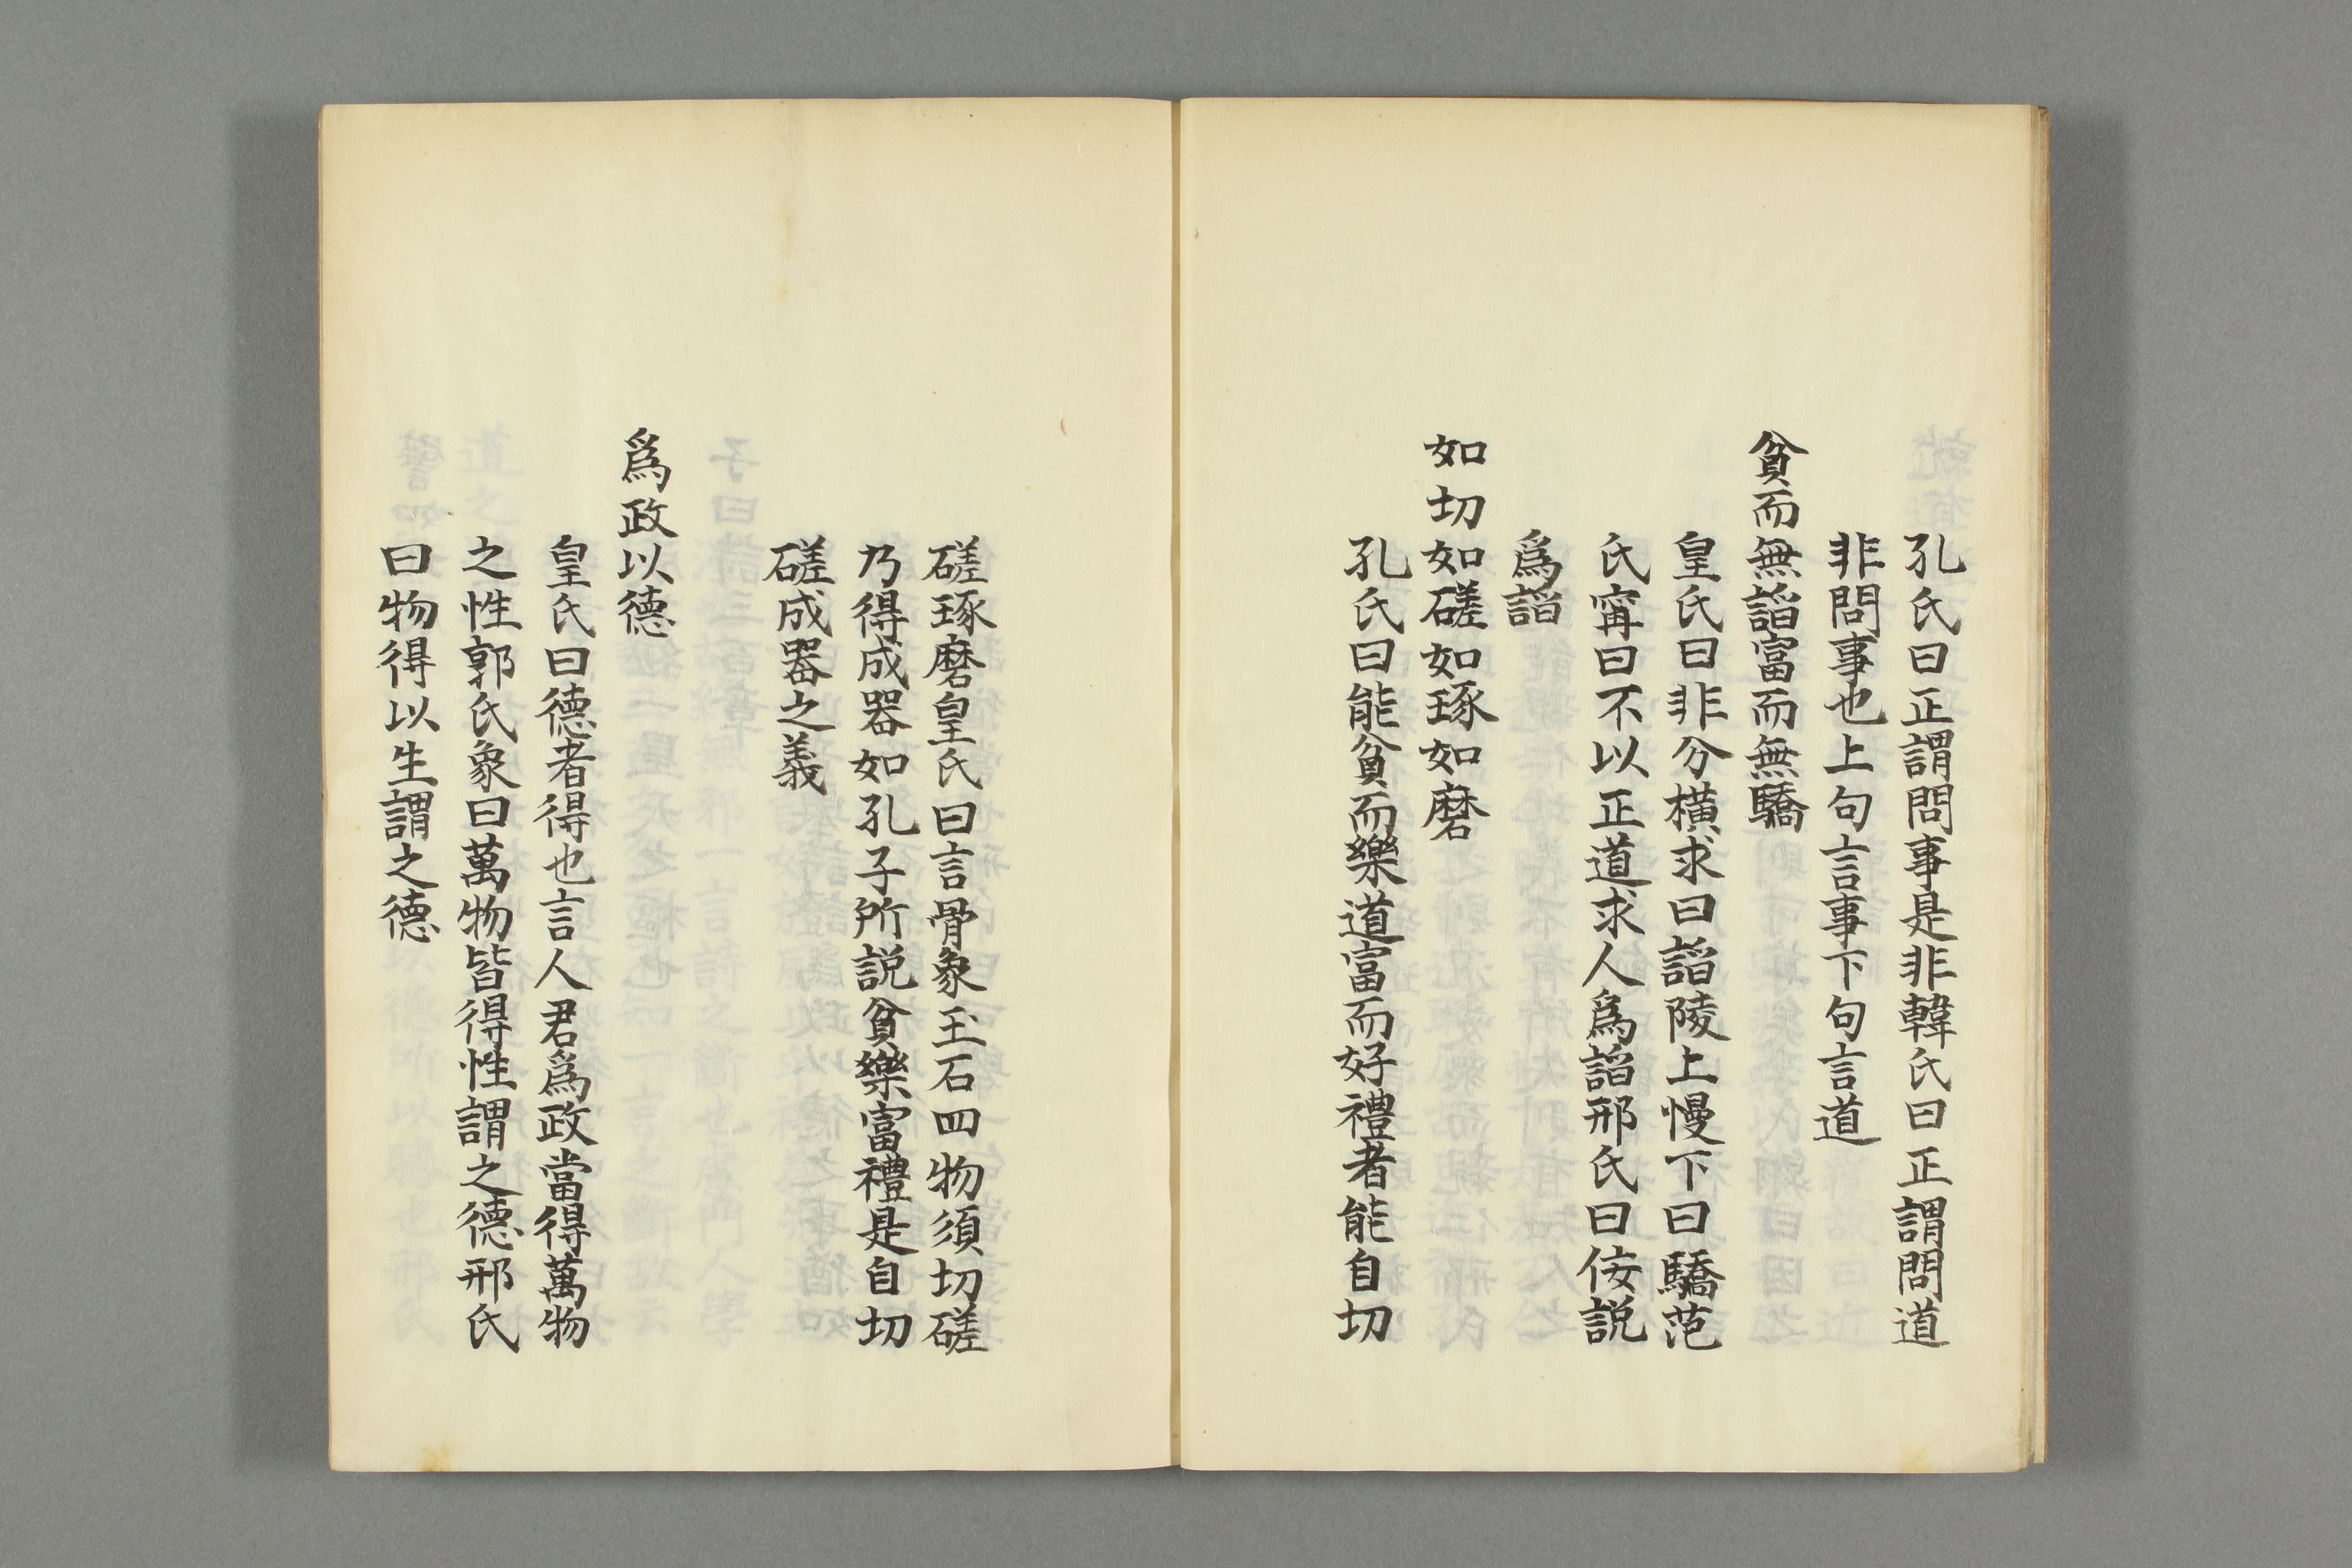 孔氏曰正謂問事是非韓氏曰正謂問道
非問事也上句言事下句言道
貧而無諂富而無驕
皇氏曰非分橫求曰諂陵上慢下曰驕范
氏寗曰不以正道求人爲諂邢氏曰佞説
爲諂
如切如磋如琢如磨
孔氏曰能貧而樂道富而好禮者能自切
磋琢磨皇氏曰言骨象玉石四物須切磋
乃得成器如孔子所説貧樂富禮是自切
磋成器之義
爲政以德
皇氏曰德者得也言人君爲政當得萬物
之性郭氏象曰萬物皆得性謂之德邢氏
曰物得以生謂之德